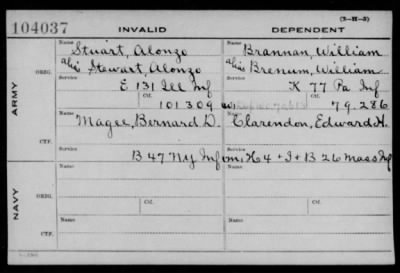 (3-H-3)
104037 INVALID DEPENDENT
Name Name
Stuart, Alonzo Brannan, William
alias Stewart, Alonzo alias Brenum, William
ARMY
ORIG. Service Service
E 131 Ill Inf K 77 Pa Inf
Ctf. Ctf.
101 309 79.286
Name Name
Magee, Bernard D. Clarendon, Edward H.
CTF. Service Service
B 47 NY Inf H 4 + I + B 26 Mass Inf
NAVY
Name Name
ORIG. Service Ctf. Service Ctf.
Name Name
CTF. Service Service